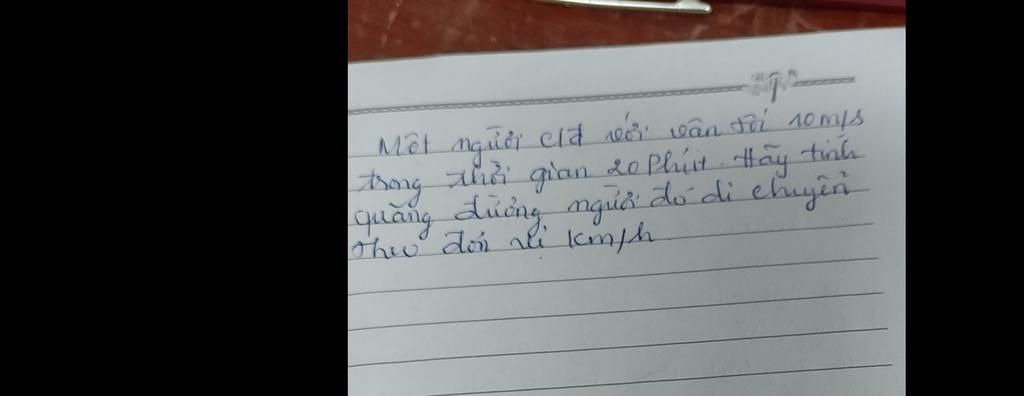 Một người c/đ với vận tối 10m/s
trong thời gian 20 phút. Hãy tính
quãng đường người đó di chuyển
theo đơn vị km/h